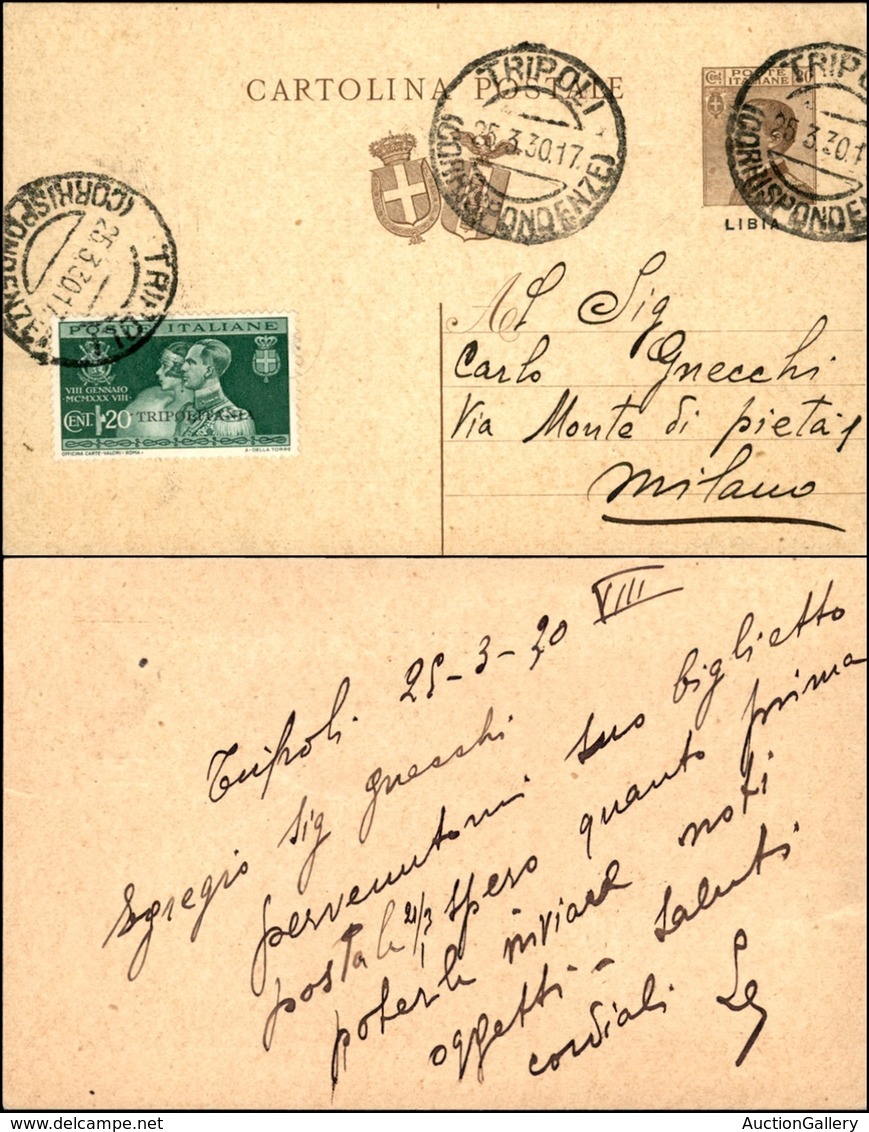 CARTOLINA POSTALE
TRIPOLI
(CORRISPONDENZE)
25.3.30.17
Cent. POSTE ITALIANE 30
LIBIA
TRIPOLI
(CORRISPONDENZE
25.3.30.1
TRIPOLI
(CORRISPONDENZE)
25.3.30.17
POSTE ITALIANE
VIII GENNAIO
MCMXXX VIII
CENT. 20
TRIPOLITANIA
OFFICINA CARTE-VALORI-ROMA-
A-DELLA TORRE
Al Sig
Carlo Gnecchi
Via Monte di pietà 1
Milano
Tripoli 25-3-30 VIII
Egregio Sig Gnecchi
pervenutomi suo biglietto
postale 21/3 spero quanto prima
poterle inviare noti
oggetti - saluti
cordiali
AuctionGallery